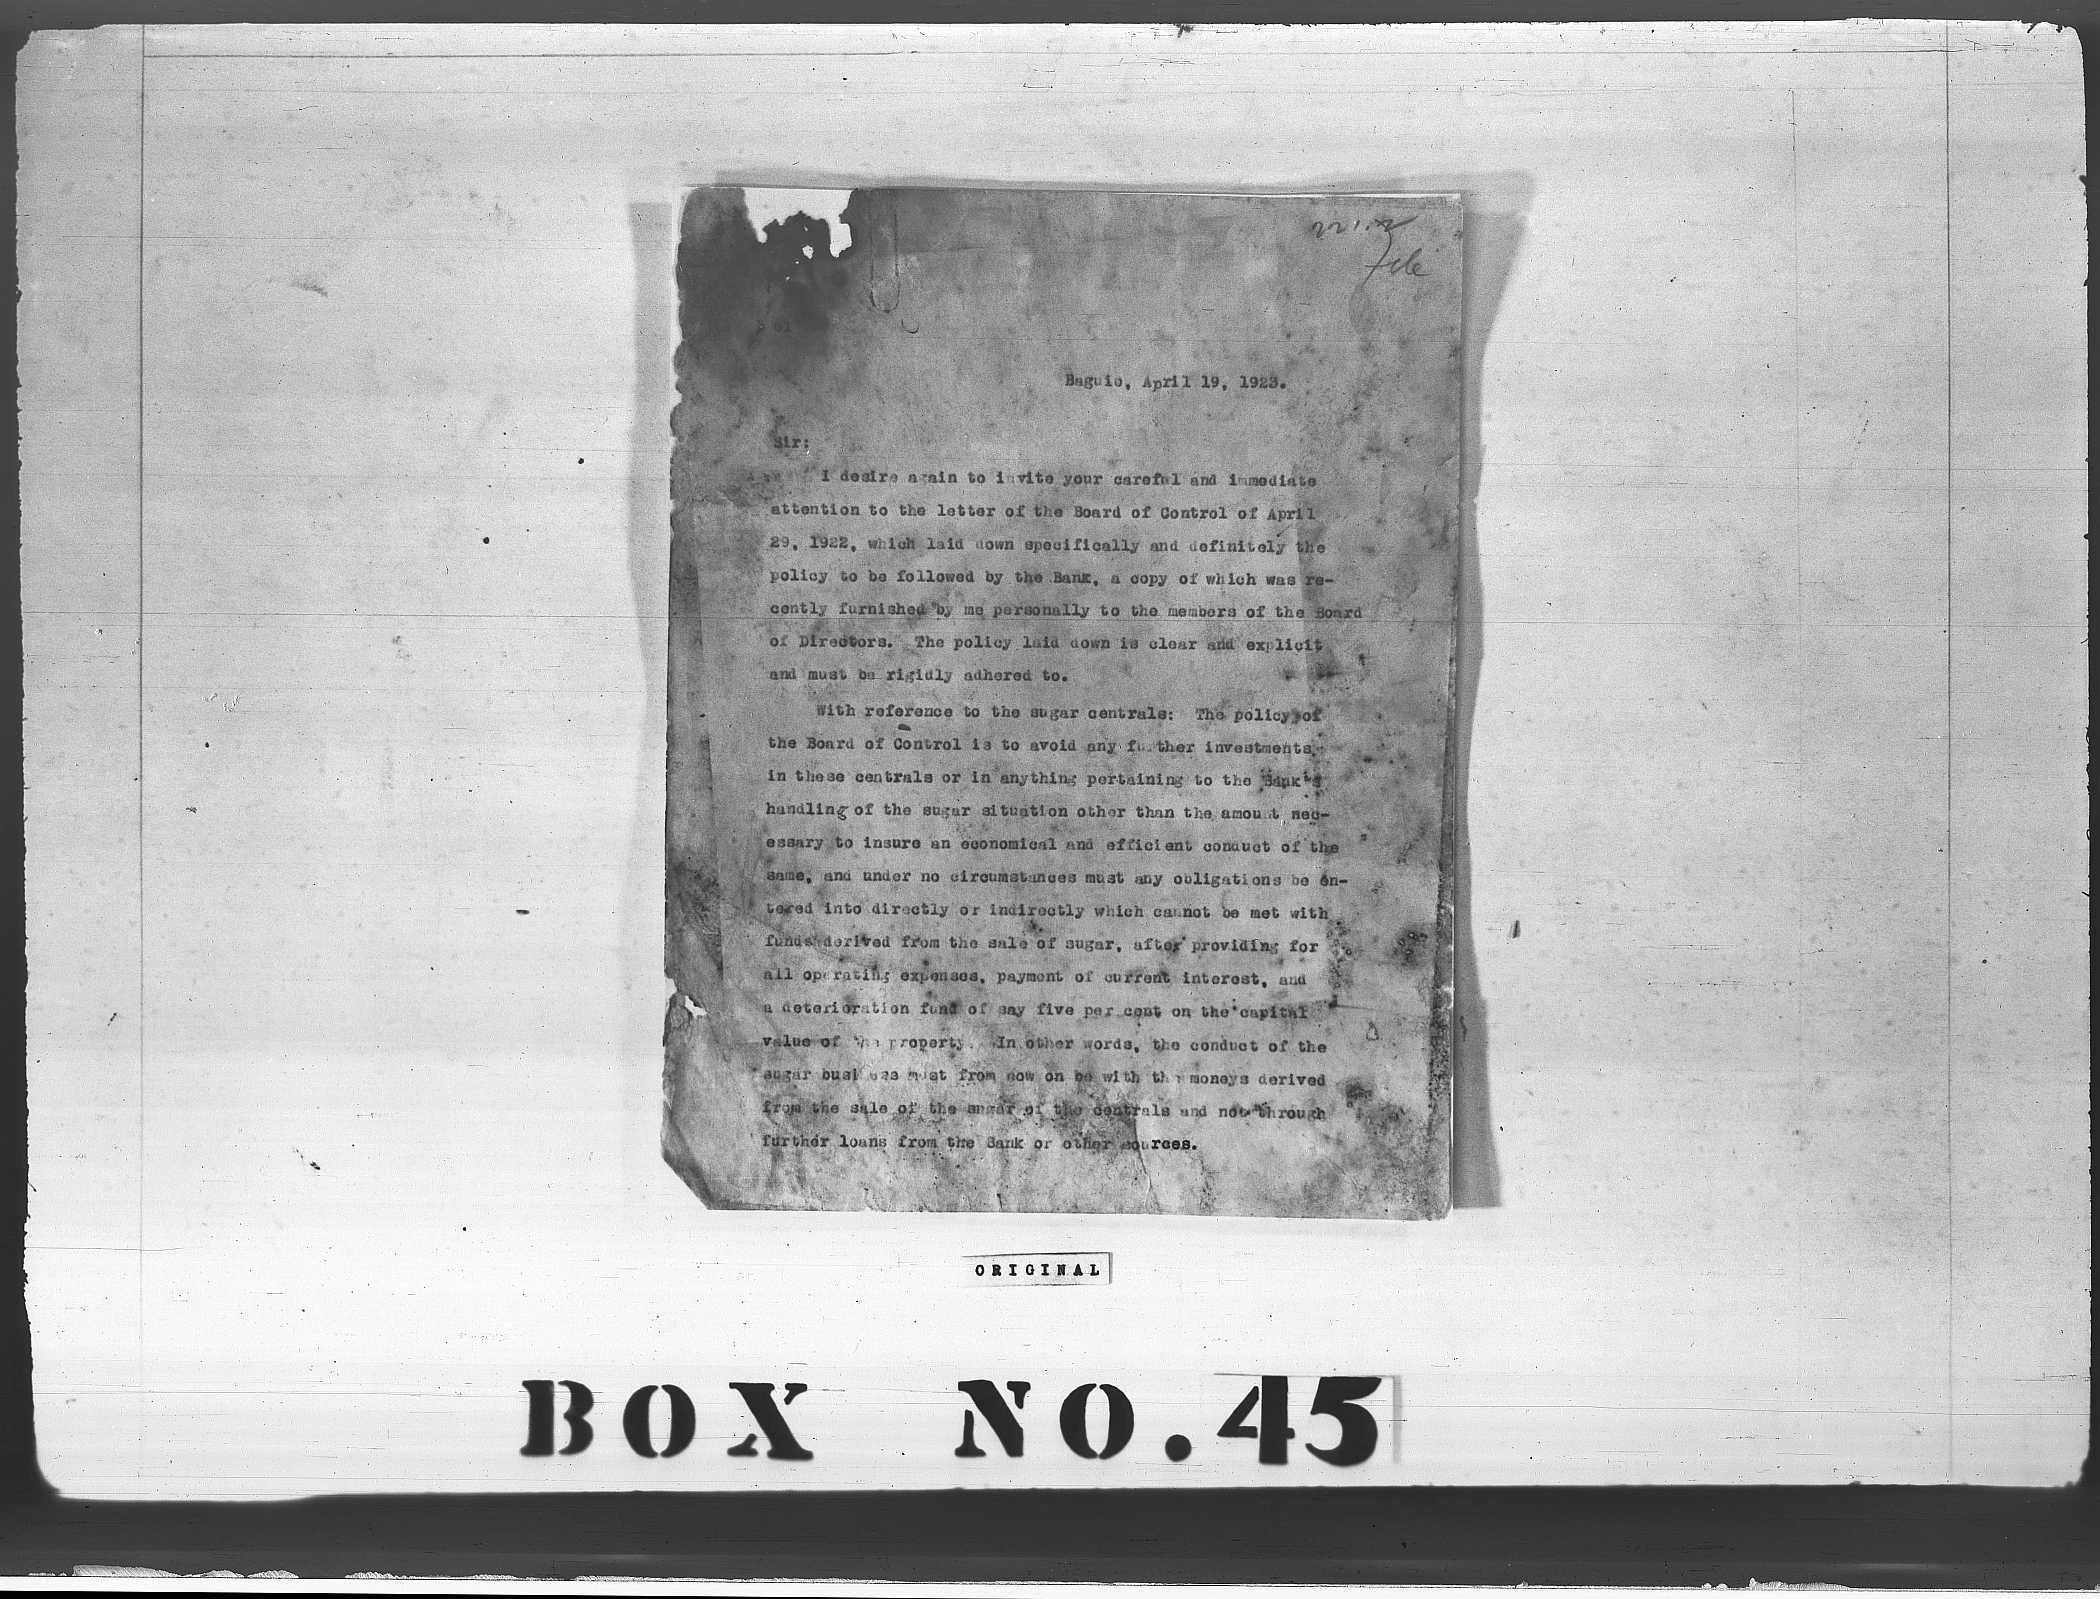 221.2
File
Baguio, April 19, 1923.
Sir:
I desire again to invite your careful and immediate
attention to the letter of the Board of Control of April
29, 1922, which laid down specifically and definitely the
policy to be followed by the Bank, a copy of which was re-
cently furnished by me personally to the members of the Board
of Directors. The policy laid down is clear and explicit
and must be rigidly adhered to.
With reference to the sugar centrals: The policy of
the Board of Control is to avoid any further investments
in these centrals or in anything pertaining to the Bank's
handling of the sugar situation other than the amount nec-
essary to insure an economical and efficient conduct of the
same, and under no circumstances must any obligations be en-
tered into directly or indirectly which cannot be met with
funds derived from the sale of sugar, after providing for
all operating expenses, payment of current interest, and
a deterioration fund of say five per cent on the capital
value of the property. In other words, the conduct of the
sugar business must from now on be with the moneys derived
from the sale of the sugar of the centrals and not through
further loans from the Bank or other sources.
ORIGINAL
BOX NO.45